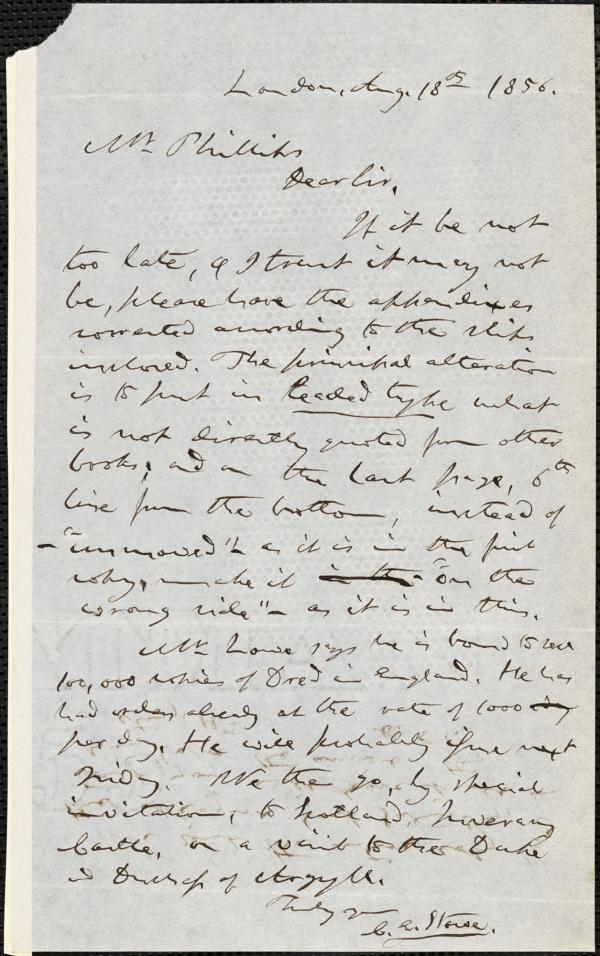 London, Aug. 18th 1856.
Mr. Phillips
Dear Sir,
If it be not
too late, & I trust it may not
be, please have the appendixes
corrected according to the slips
inclosed. The principal alteration
is to put in leaded type what
is not directly quoted from other
books; and on the last page, 6th
line from the bottom, instead of
"unmoved" - as it is in the first
copy, make it in the "on the
wrong side" - as it is in this.
Mr. Lowe says he is bound to sell
100,000 copies of Dred in England. He has
had orders already at the rate of 1000
per day. He will probably issue next
Friday. We then go, by special
invitation, to Scotland, Inverary
Castle, on a visit to the Duke
and Duchess of Argyll.
Truly yr
C. E. Stowe.